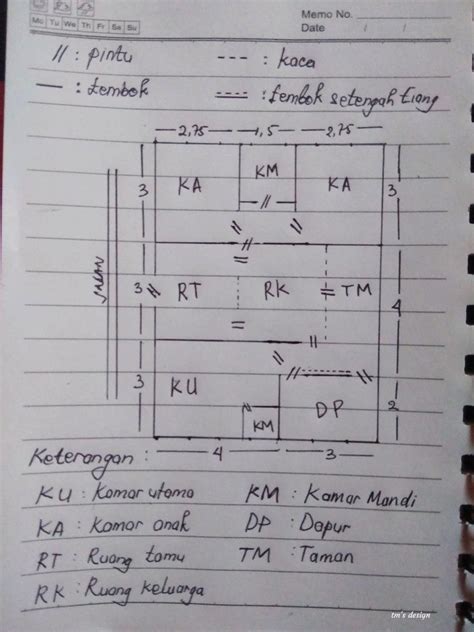 Memo No.
Mo Tu We Th Fr Sa Su
Date / /
// : pintu --- : kaca
— : tembok : tembok setengah tiang
2,75 1,5 2,75
3 KA KM KA 3
3 RT RK TM 4
3 KU DP 2
KM
4 3
Keterangan :
KU : Kamar utama KM : Kamar Mandi
KA : Kamar anak DP : Dapur
RT : Ruang tamu TM : Taman
RK : Ruang keluarga
tm's design